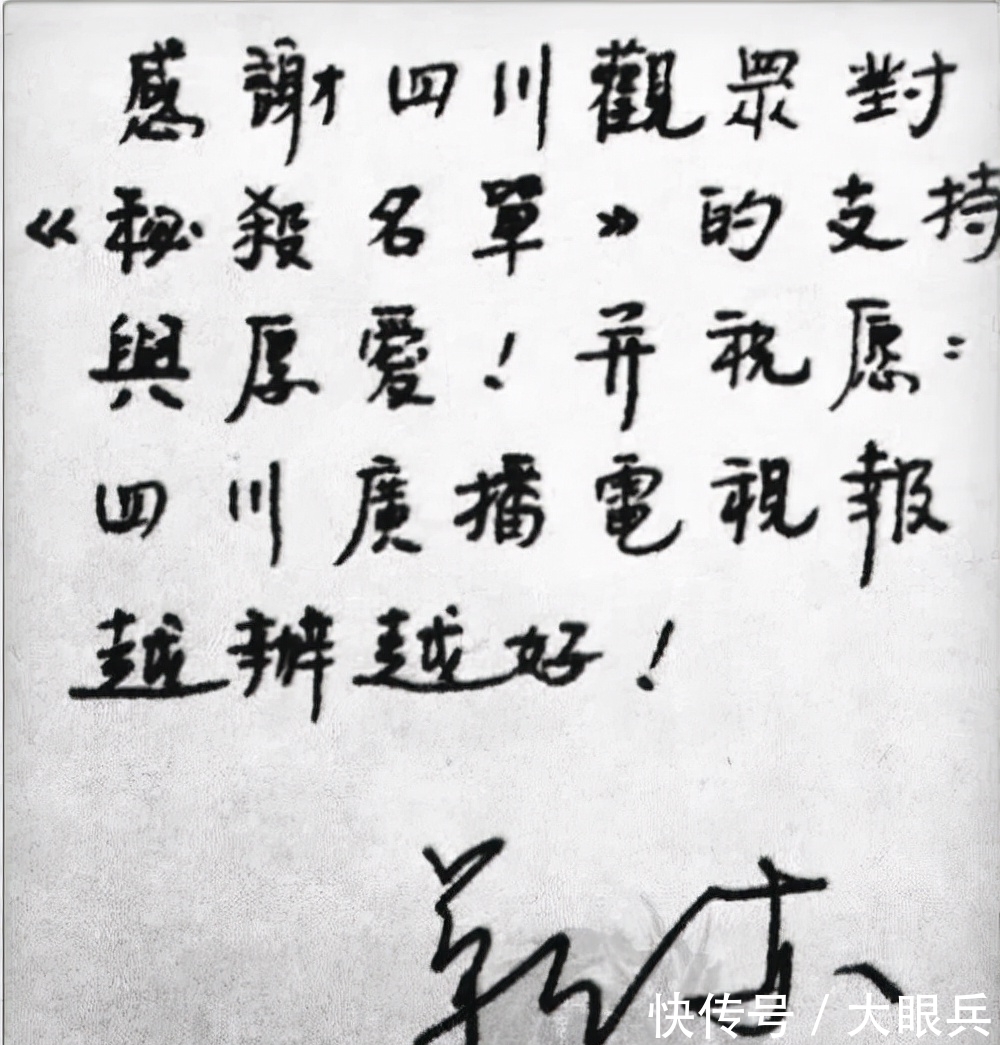 感謝四川觀眾對
《秘殺名單》的支持
與厚愛！并祝愿：
四川廣播電視報
越辦越好！
快传号/大眼兵